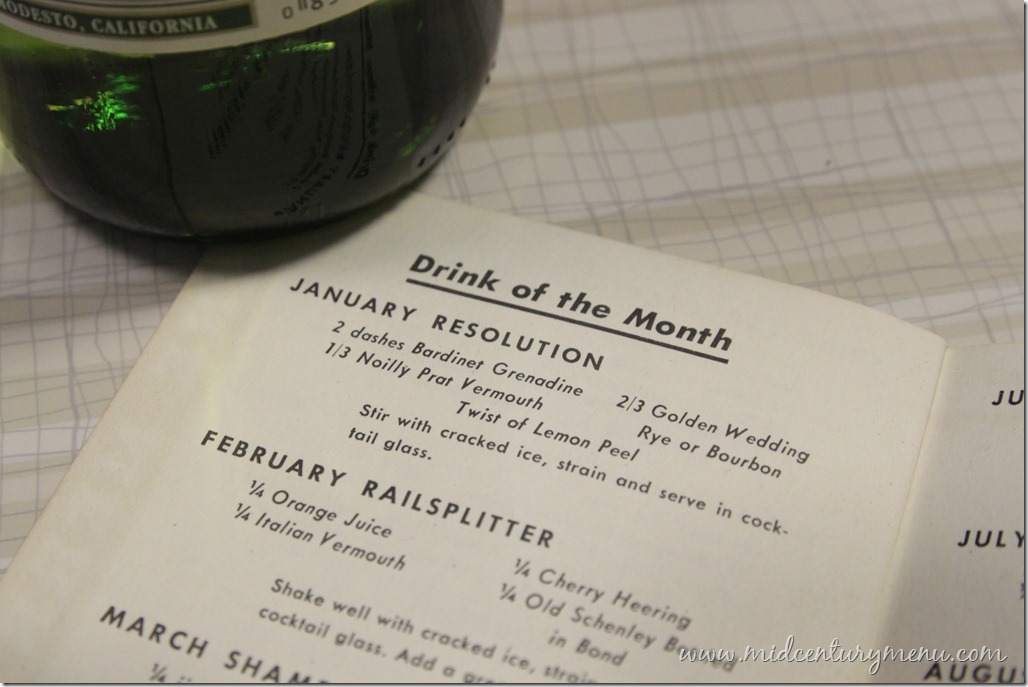 MODESTO, CALIFORNIA
Drink of the Month
JANUARY RESOLUTION
2 dashes Bardinet Grenadine
1/3 Noilly Prat Vermouth
2/3 Golden Wedding
Rye or Bourbon
Twist of Lemon Peel
Stir with cracked ice, strain and serve in cock-
tail glass.
FEBRUARY RAILSPLITTER
¼ Orange Juice
¼ Italian Vermouth
¼ Cherry Heering
¼ Old Schenley
in Bond
Shake well with cracked ice,
cocktail glass. Add a
MARCH
JULY
AUGU
www.midcenturymenu.com